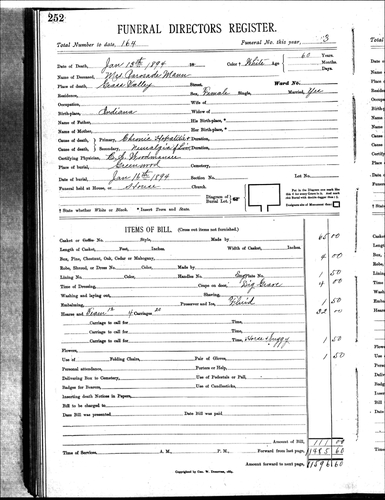 252
FUNERAL DIRECTORS REGISTER.
Total Number to date, 164 Funeral No. this year, 3
Date of Death, Jan 13th 1894 18 Color † White Age 60 Years. Months. Days.
Name of Deceased, Mrs Mann
Place of death, Grass Valley Street, Ward No.
Residence, Sex, Female Single, Married, Yes
Occupation, Wife of
Birth-place, Indiana Widow of
Name of Father, His Birth-place, *
Name of Mother, Her Birth-place, *
Cause of death, Primary, Chronic Hepatitis Duration,
Cause of death, Secondary, Neuralgia Duration,
Certifying Physician, C. A.
Place of burial, Greenwood Cemetery,
Date of burial, Jan 16th 1894 Section No. Lot No.
Funeral held at House, or House Church,
Diagram of Burial Lot.
† State whether White or Black. * Insert Town and State.
ITEMS OF BILL. (Cross out items not furnished.)
Casket or Coffin No. Style, Made by 65 00
Length of Casket, Feet, Inches. Width of Casket, Inches.
Box, Pine, Chestnut, Oak, Cedar or Mahogany, 4 00
Robe, Shroud, or Dress No. Color, Made by
Lining No. Color, Handles No. Engraving 1 50
Time of Dressing, Crape on door, Dig Grave 4 00
Washing and laying out, Shaving,
Embalming, Preserver and Ice, Fluid 1 50
Hearse and Team 12 4 Carriages 20 32 00
Carriage to call for Time,
Carriage to call for Time,
Carriage to call for Time, Horse & Buggy 1 50
Flowers,
Use of Folding Chairs, Pair of Gloves, 1 50
Personal attendance, Porters or Help,
Delivering Box to Cemetery, Use of Pedestals or Pall,
Badges for Bearers, Use of Candlesticks,
Inserting death Notices in Papers,
Bill to be charged to
Date Bill was presented Date Bill was paid
Amount of Bill, 111 00
Time of Services, A. M., P. M. Forward from last page, 11485 60
Amount forward to next page, 11596 60
Copyrighted by Geo. W.